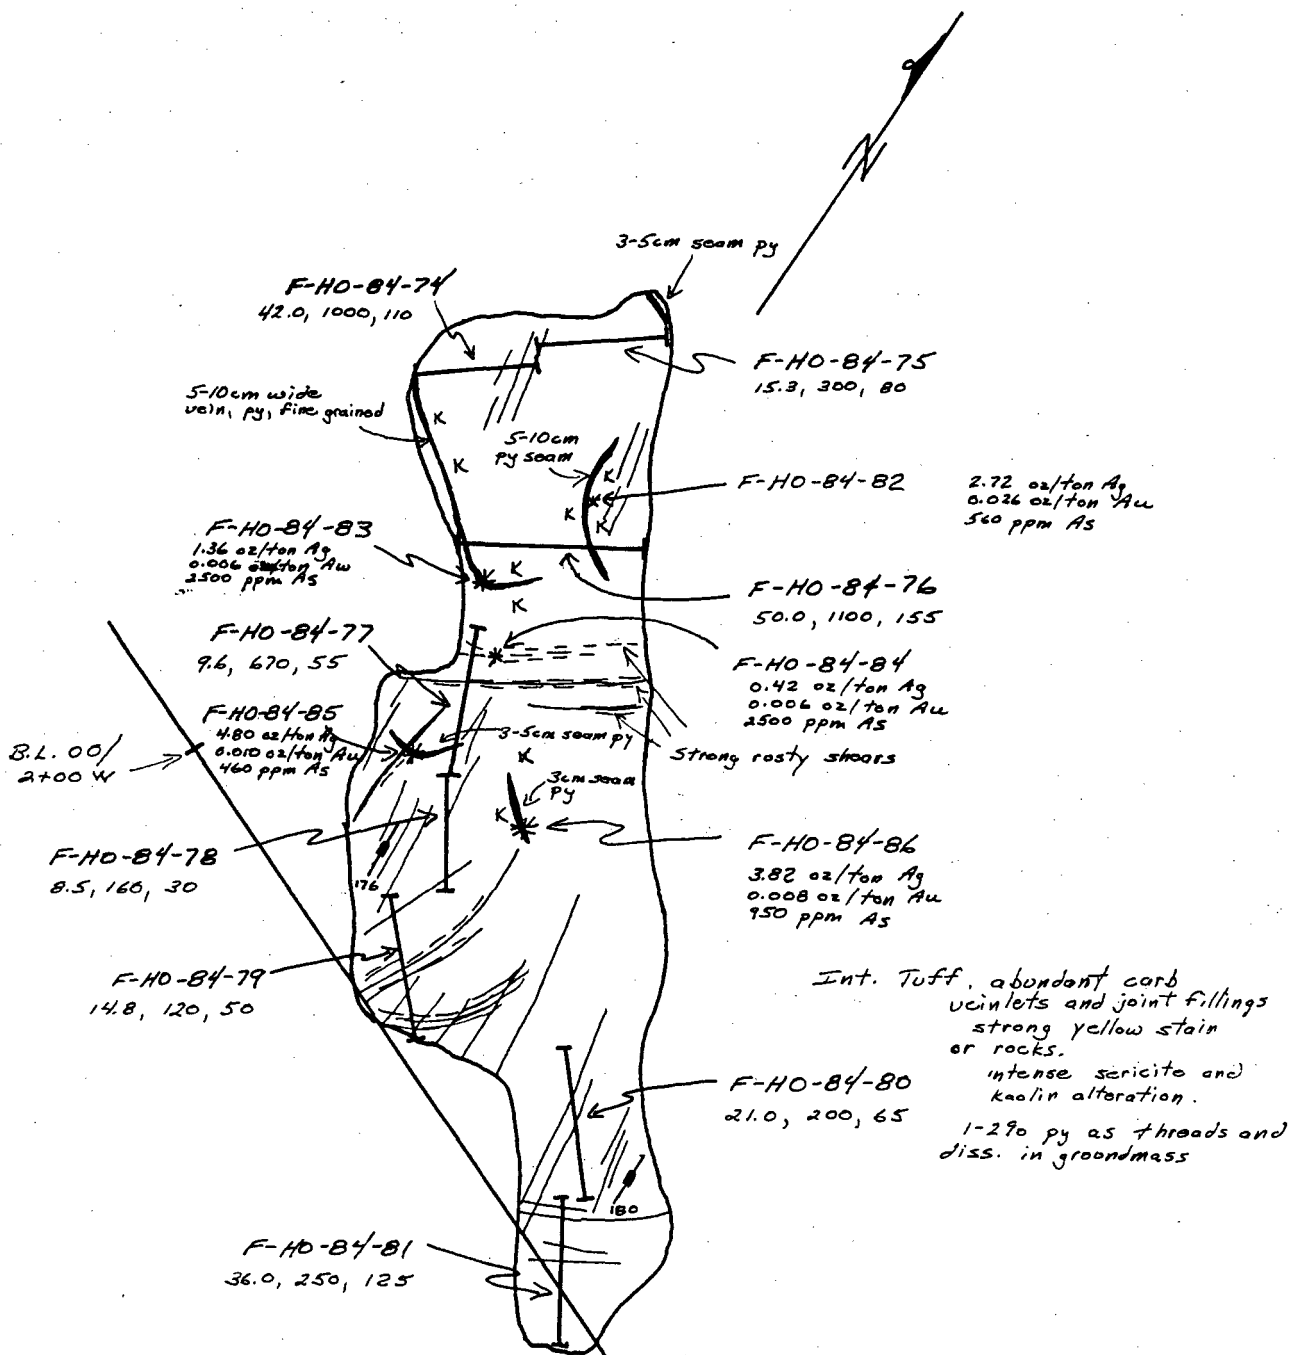 N
3-5cm seam py
F-HO-84-74
42.0, 1000, 110
F-HO-84-75
15.3, 300, 80
5-10cm wide
vein, py, fine grained
K
K
5-10cm
py seam
K
K
K
F-HO-84-82
2.72 oz/ton Ag
0.026 oz/ton Au
560 ppm As
F-HO-84-83
1.36 oz/ton Ag
0.006 oz/ton Au
2500 ppm As
K
K
F-HO-84-76
50.0, 1100, 155
F-HO-84-77
9.6, 670, 55
F-HO-84-84
0.42 oz/ton Ag
0.006 oz/ton Au
2500 ppm As
F-HO-84-85
4.80 oz/ton Ag
0.010 oz/ton Au
460 ppm As
3-5cm seam py
Strong rosty shears
B.L. 00/
2+00 W
K
3cm seam
py
K
F-HO-84-78
8.5, 160, 30
176
F-HO-84-86
3.82 oz/ton Ag
0.008 oz/ton Au
950 ppm As
F-HO-84-79
14.8, 120, 50
Int. Tuff, abundant carb
veinlets and joint fillings
strong yellow stain
or rocks.
intense sericite and
kaolin alteration.
1-2% py as threads and
diss. in groundmass
F-HO-84-80
21.0, 200, 65
180
F-HO-84-81
36.0, 250, 125